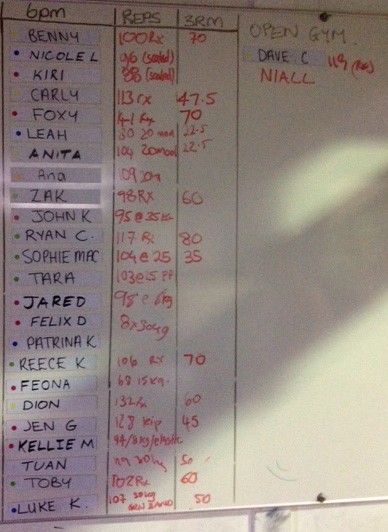 6pm REPS 3RM OPEN GYM.
BENNY 100 Rx 70
NICOLE L 96 (scaled) DAVE. C 118 (Rx)
KIRI 88 (scaled) NIALL
CARLY 113 rx 47.5
FOXY Rx 70
LEAH 80 20 22.5
ANITA 104 20 22.5
Ana 109 20
ZAK 98 RX 60
JOHN K 95 @ 35 KG
RYAN C. 117 Rx 80
SOPHIE MAC 104 @ 25 35
TARA 103 @ 25 PP
JARED 98 @ kg
FELIX D 8x30kg
PATRINA K
REECE K 106 Rx 70
FEONA 68 15 kg.
DION 132 Rx 60
JEN G 128 kip 45
KELLIE M
TUAN 30kg 50
TOBY 102 Rx 60
LUKE K. 107 30kg 50